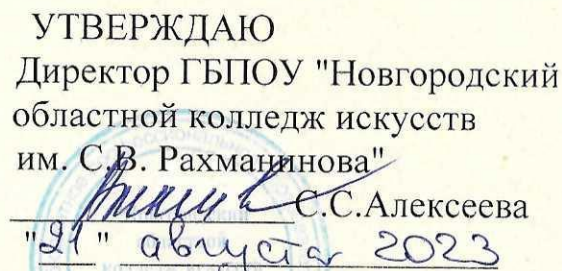 УТВЕРЖДАЮ
Директор ГБПОУ "Новгородский
областной колледж искусств
им. С.В. Рахманинова"
С.С.Алексеева
"21" августа 2023